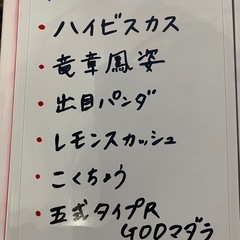 ・ハイビスカス
・竜章鳳姿
・出目パンダ
・レモンスカッシュ
・こくちょう
・五式タイプR
GODマダラ